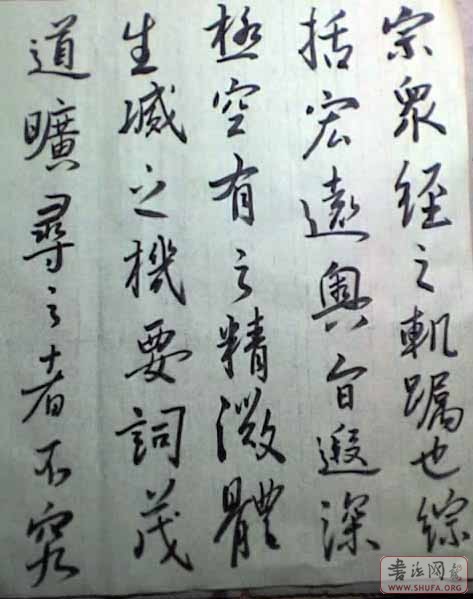 宗衆經之軌躅也綜
括宏遠奧旨遐深
極空有之精微體
生滅之機要詞茂
道曠尋之者不究
書法网
WWW.SHUFA.ORG